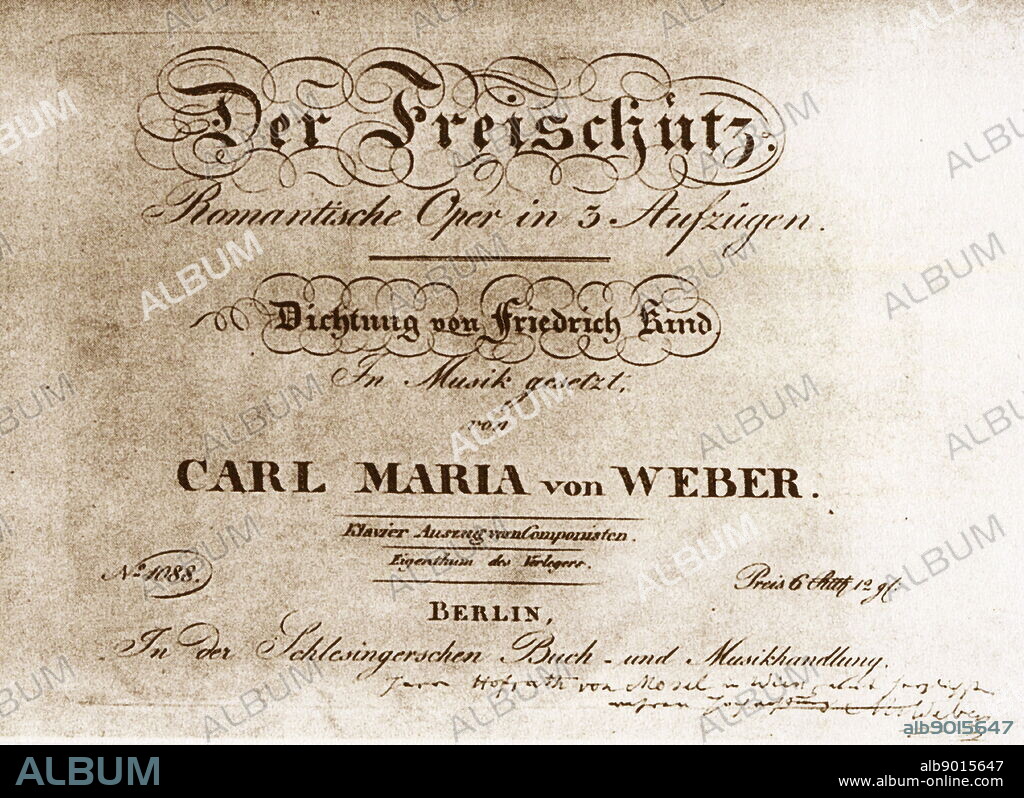 Der Freischütz.
Romantische Oper in 3 Aufzügen.
Dichtung von Friedrich Kind
In Musik gesetzt,
von
CARL MARIA von WEBER.
Klavier Auszug vom Componisten.
Eigenthum des Verlegers.
No. 1088.
Preis 6 Rth 12 gl.
BERLIN,
In der Schlesingerschen Buch- und Musikhandlung.
Herr Hofrath von Mosel in Wien
Weber
alb9015647
ALBUM
alb9015647
www.album-online.com